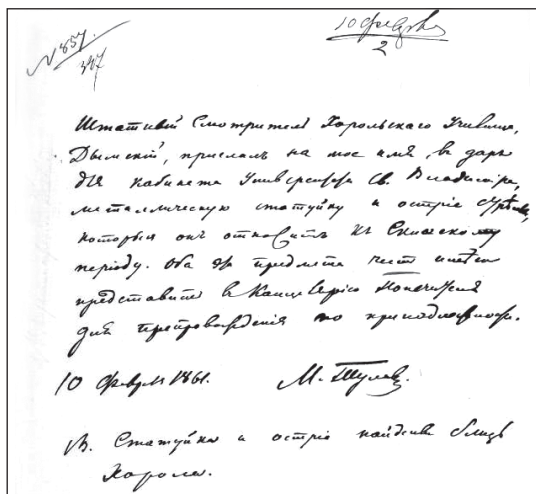 N 857.
347
10 февр
2
Штатный Смотритель Хорольскаго Училища,
Дымскій, прислалъ на мое имя, въ даръ
для кабинета Университета Св. Владиміра,
металлическую статуйку и остріе стрѣлы,
которыя онъ относитъ къ Скиѳскому
періоду. Оба эти предмета честь имѣю
представить въ Канцелярію Попечителя
для препровожденія по принадлежности.
10 Февраля 1861. М. Тулов.
Статуйка и остріе найдены близъ
Хорола.